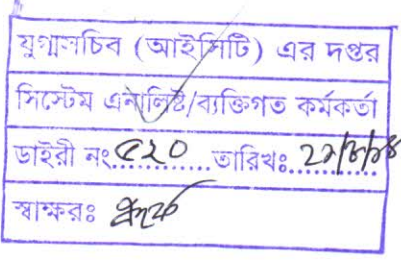 যুগ্মসচিব (আইসিটি) এর দপ্তর
সিস্টেম এনালিষ্ট/ব্যক্তিগত কর্মকর্তা
ডাইরী নং ৫২০ তারিখঃ
স্বাক্ষরঃ